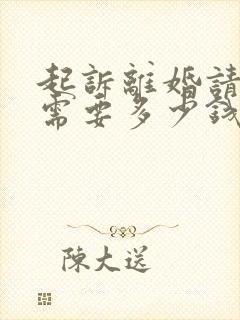 起訴離婚請
需要多少錢
陳大送